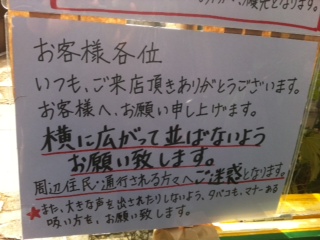 お客様各位
いつも、ご来店頂きありがとうございます。
お客様へ、お願い申し上げます。
横に広がって並ばないよう
お願い致します。
周辺住民・通行される方々へご迷惑となります。
★また、大きな声を出されたりしないよう、タバコも、マナーある
吸い方を、お願い致します。